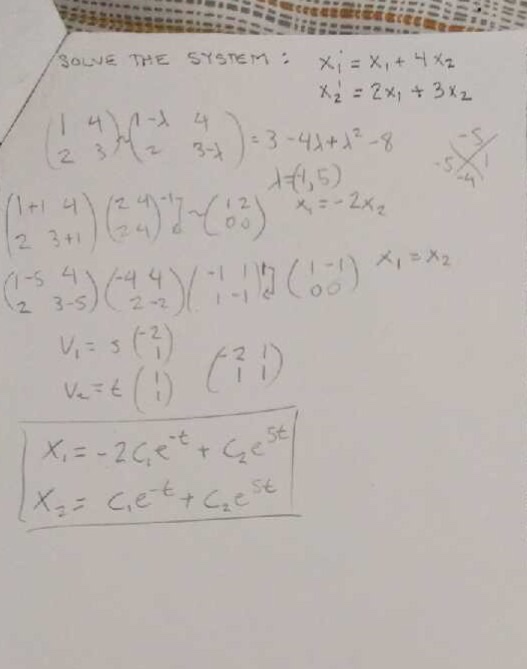 SOLVE THE SYSTEM : x₁' = x₁ + 4x₂
x₂' = 2x₁ + 3x₂
(1 4; 2 3) ~ (1-λ 4; 2 3-λ) = 3 - 4λ + λ² - 8
-5
-5 1
-4
λ = (-1, 5)
(1+1 4; 2 3+1) (2 4; 2 4) -1 ~ (1 2; 0 0) x₁ = -2x₂
(1-5 4; 2 3-5) (-4 4; 2 -2) (-1 1; 1 -1) (1 -1; 0 0) x₁ = x₂
V₁ = s (-2; 1)
V₂ = t (1; 1) (-2 1; 1 1)
X₁ = -2C₁e^-t + C₂e^5t
X₂ = C₁e^-t + C₂e^5t